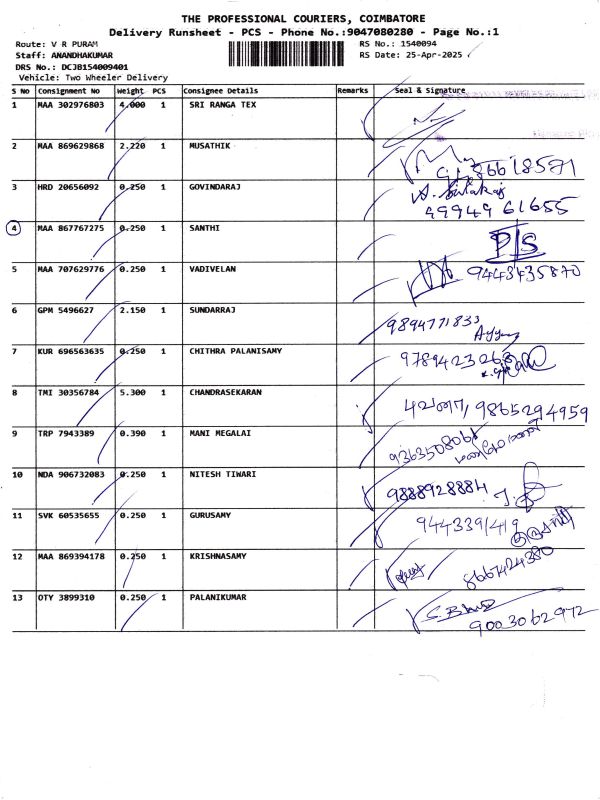 THE PROFESSIONAL COURIERS, COIMBATORE
Delivery Runsheet - PCS - Phone No.:9047080280 - Page No.:1
Route: V R PURAM RS No.: 1540094
Staff: ANANDHAKUMAR RS Date: 25-Apr-2025
DRS No.: DCJB154009401
Vehicle: Two Wheeler Delivery
S No Consignment No Weight PCS Consignee Details Remarks Seal & Signature
1 MAA 302976803 4.000 1 SRI RANGA TEX
2 MAA 869629868 2.220 1 MUSATHIK
3 HRD 20656092 0.250 1 GOVINDARAJ 99949 61655
4 MAA 867767275 0.250 1 SANTHI P/S
5 MAA 707629776 0.250 1 VADIVELAN 9443435870
6 GPM 5496627 2.150 1 SUNDARRAJ 9894771833
7 KUR 696563635 0.250 1 CHITHRA PALANISAMY
8 TMI 30356784 5.300 1 CHANDRASEKARAN 9865294959
9 TRP 7943389 0.390 1 MANI MEGALAI
10 NDA 906732083 0.250 1 NITESH TIWARI 9888928884
11 SVK 60535655 0.250 1 GURUSAMY
12 MAA 869394178 0.250 1 KRISHNASAMY 8667424380
13 OTY 3899310 0.250 1 PALANIKUMAR 9003062972